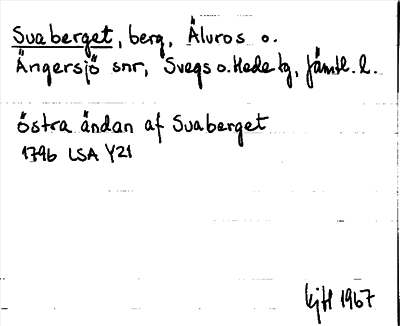 Svaberget, berg, Älvros o.
Ängersjö snr, Svegs o. Hede tg, Jämtl. l.
östra ändan af Svaberget
1796 LSA Y21
KjH 1967